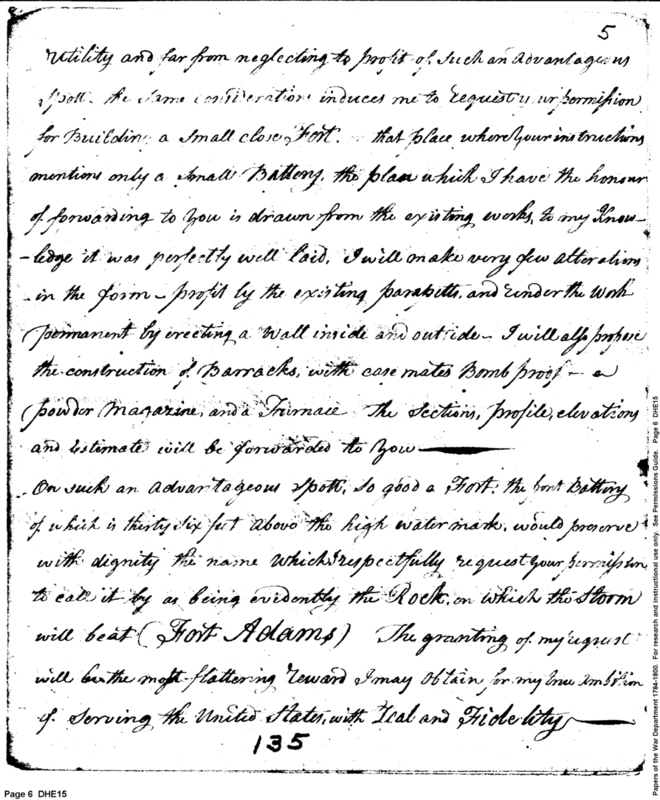 5
Utility and far from neglecting to profit of such an advantageous
Spott. the same considerations induces me to request your permission
for Building a Small close Fort. that place where Your instructions
mentions only a Small Battery, the plan which I have the honour
of forwarding to You is drawn from the existing works, to my Know-
-ledge it was perfectly well laid, I will make very few alterations
in the form - profit by the existing parapetts, and render the Work
permanent by erecting a Wall inside and outside - I will also propose
the construction of Barracks, with casemates Bomb proof - a
powder Magazine, and a Furnace The Sections, profile, elevations
and Estimate will be forwarded to You
On such an advantageous Spott, so good a Fort, the front Battery
of which is thirty six feet above the high water mark, would preserve
with dignity the name which I respectfully request Your permission
to call it by as being evidently the Rock, on which the Storm
will beat (Fort Adams) The granting of my request
will be the most flattering reward I may obtain for my true Ambition
of Serving the United States, with Zeal and Fidelity
135
Page 6 DHE15
Papers of the War Department 1784-1800. For research and instructional use only. See Permissions Guide. Page 6 DHE15